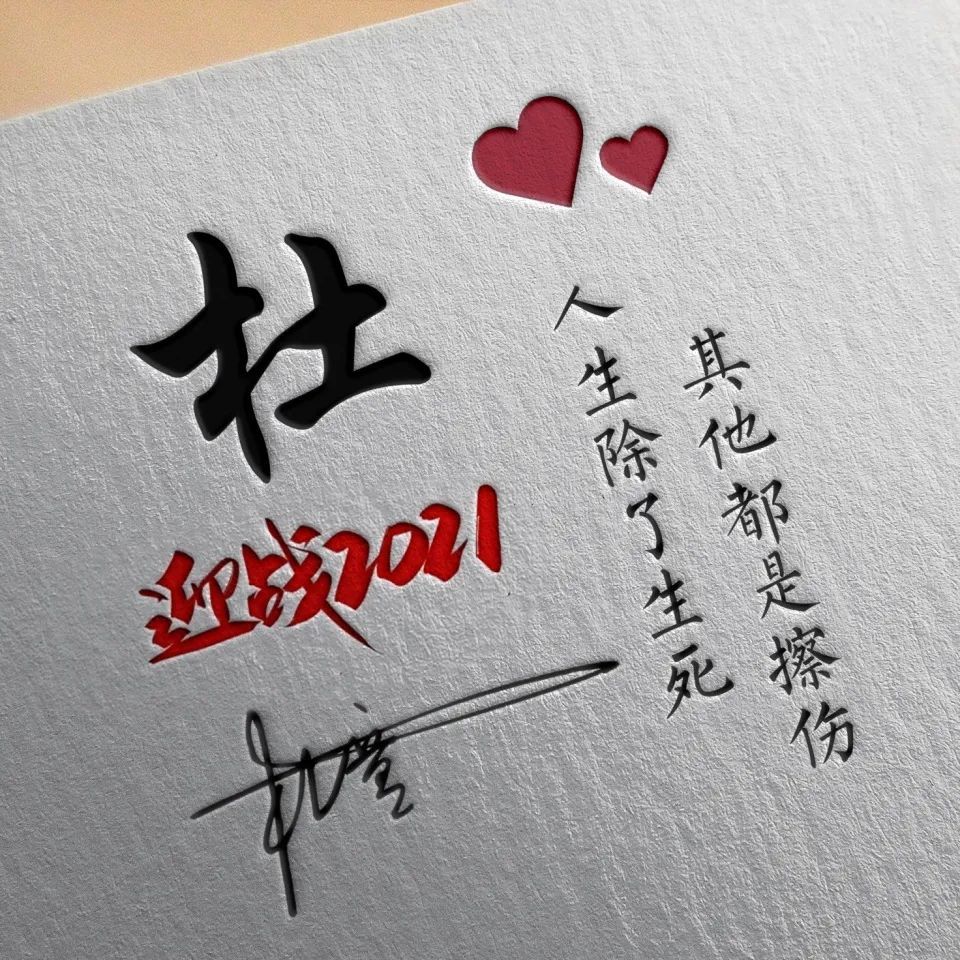 杜
迎战2021
人生除了生死
其他都是擦伤